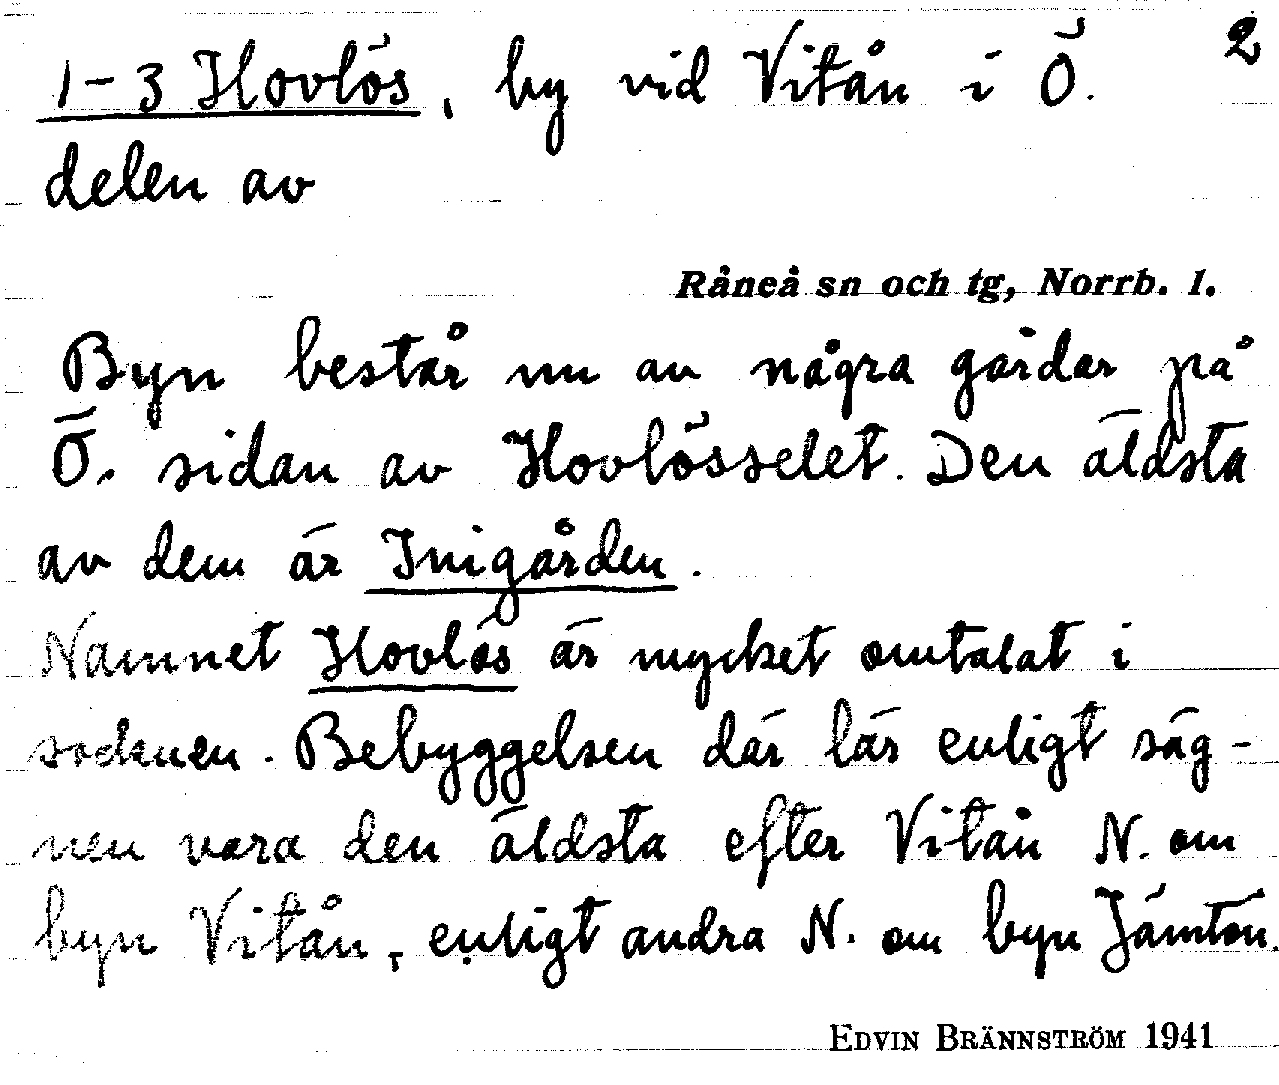 2
1-3 Hovlös, by vid Vitån i Ö.
delen av
Råneå sn och tg, Norrb. l.
Byn består nu av några gårdar på
Ö. sidan av Hovlösselet. Den äldsta
av dem är Inigården.
Namnet Hovlös är mycket omtalat i
socknen. Bebyggelsen där lär enligt säg-
nen vara den äldsta efter Vitån N. om
byn Vitån, enligt andra N. om byn Jämtön.
EDVIN BRÄNNSTRÖM 1941